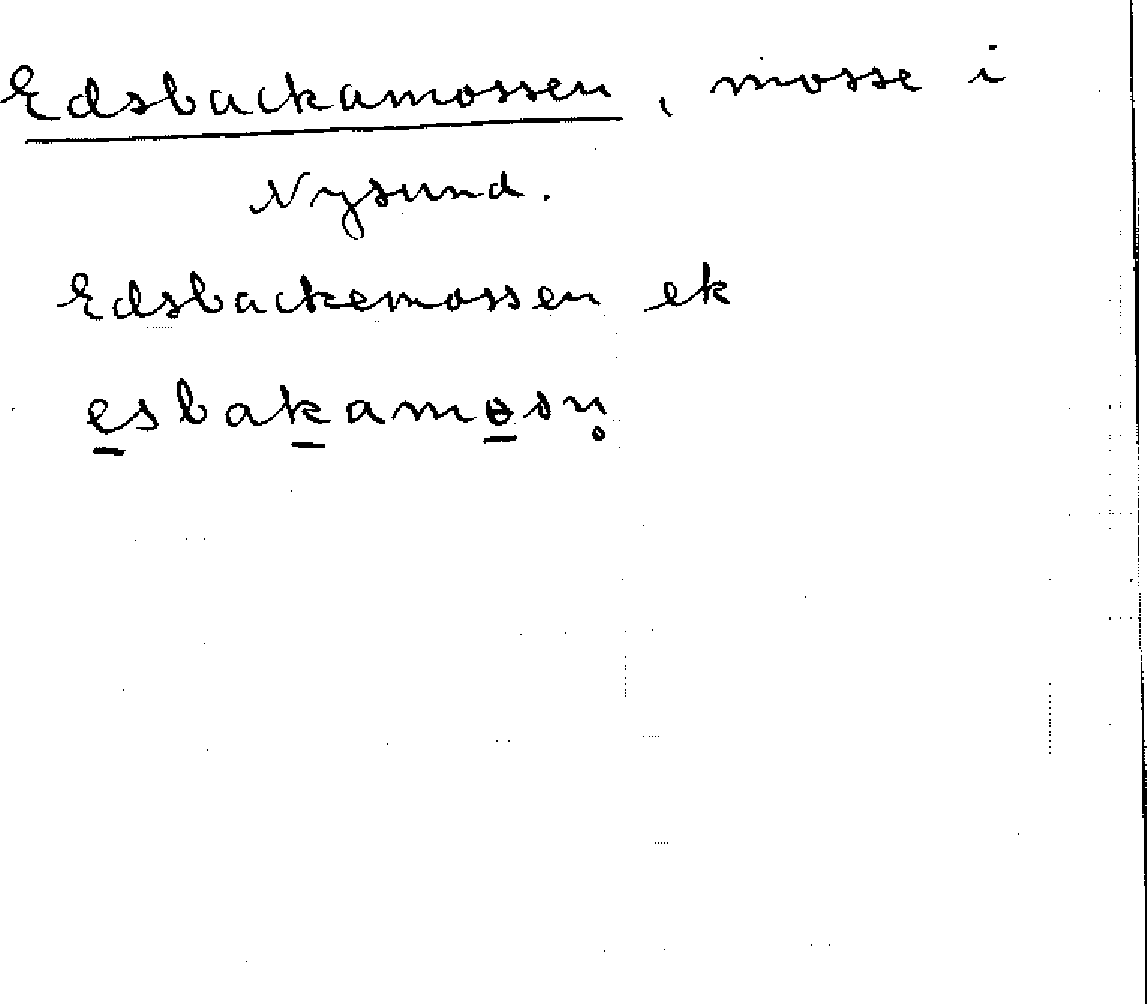 Edsbackamossen, mosse i
Nysund.
Edsbackemossen ek
e̲sbak̲amɵ̲sn̥